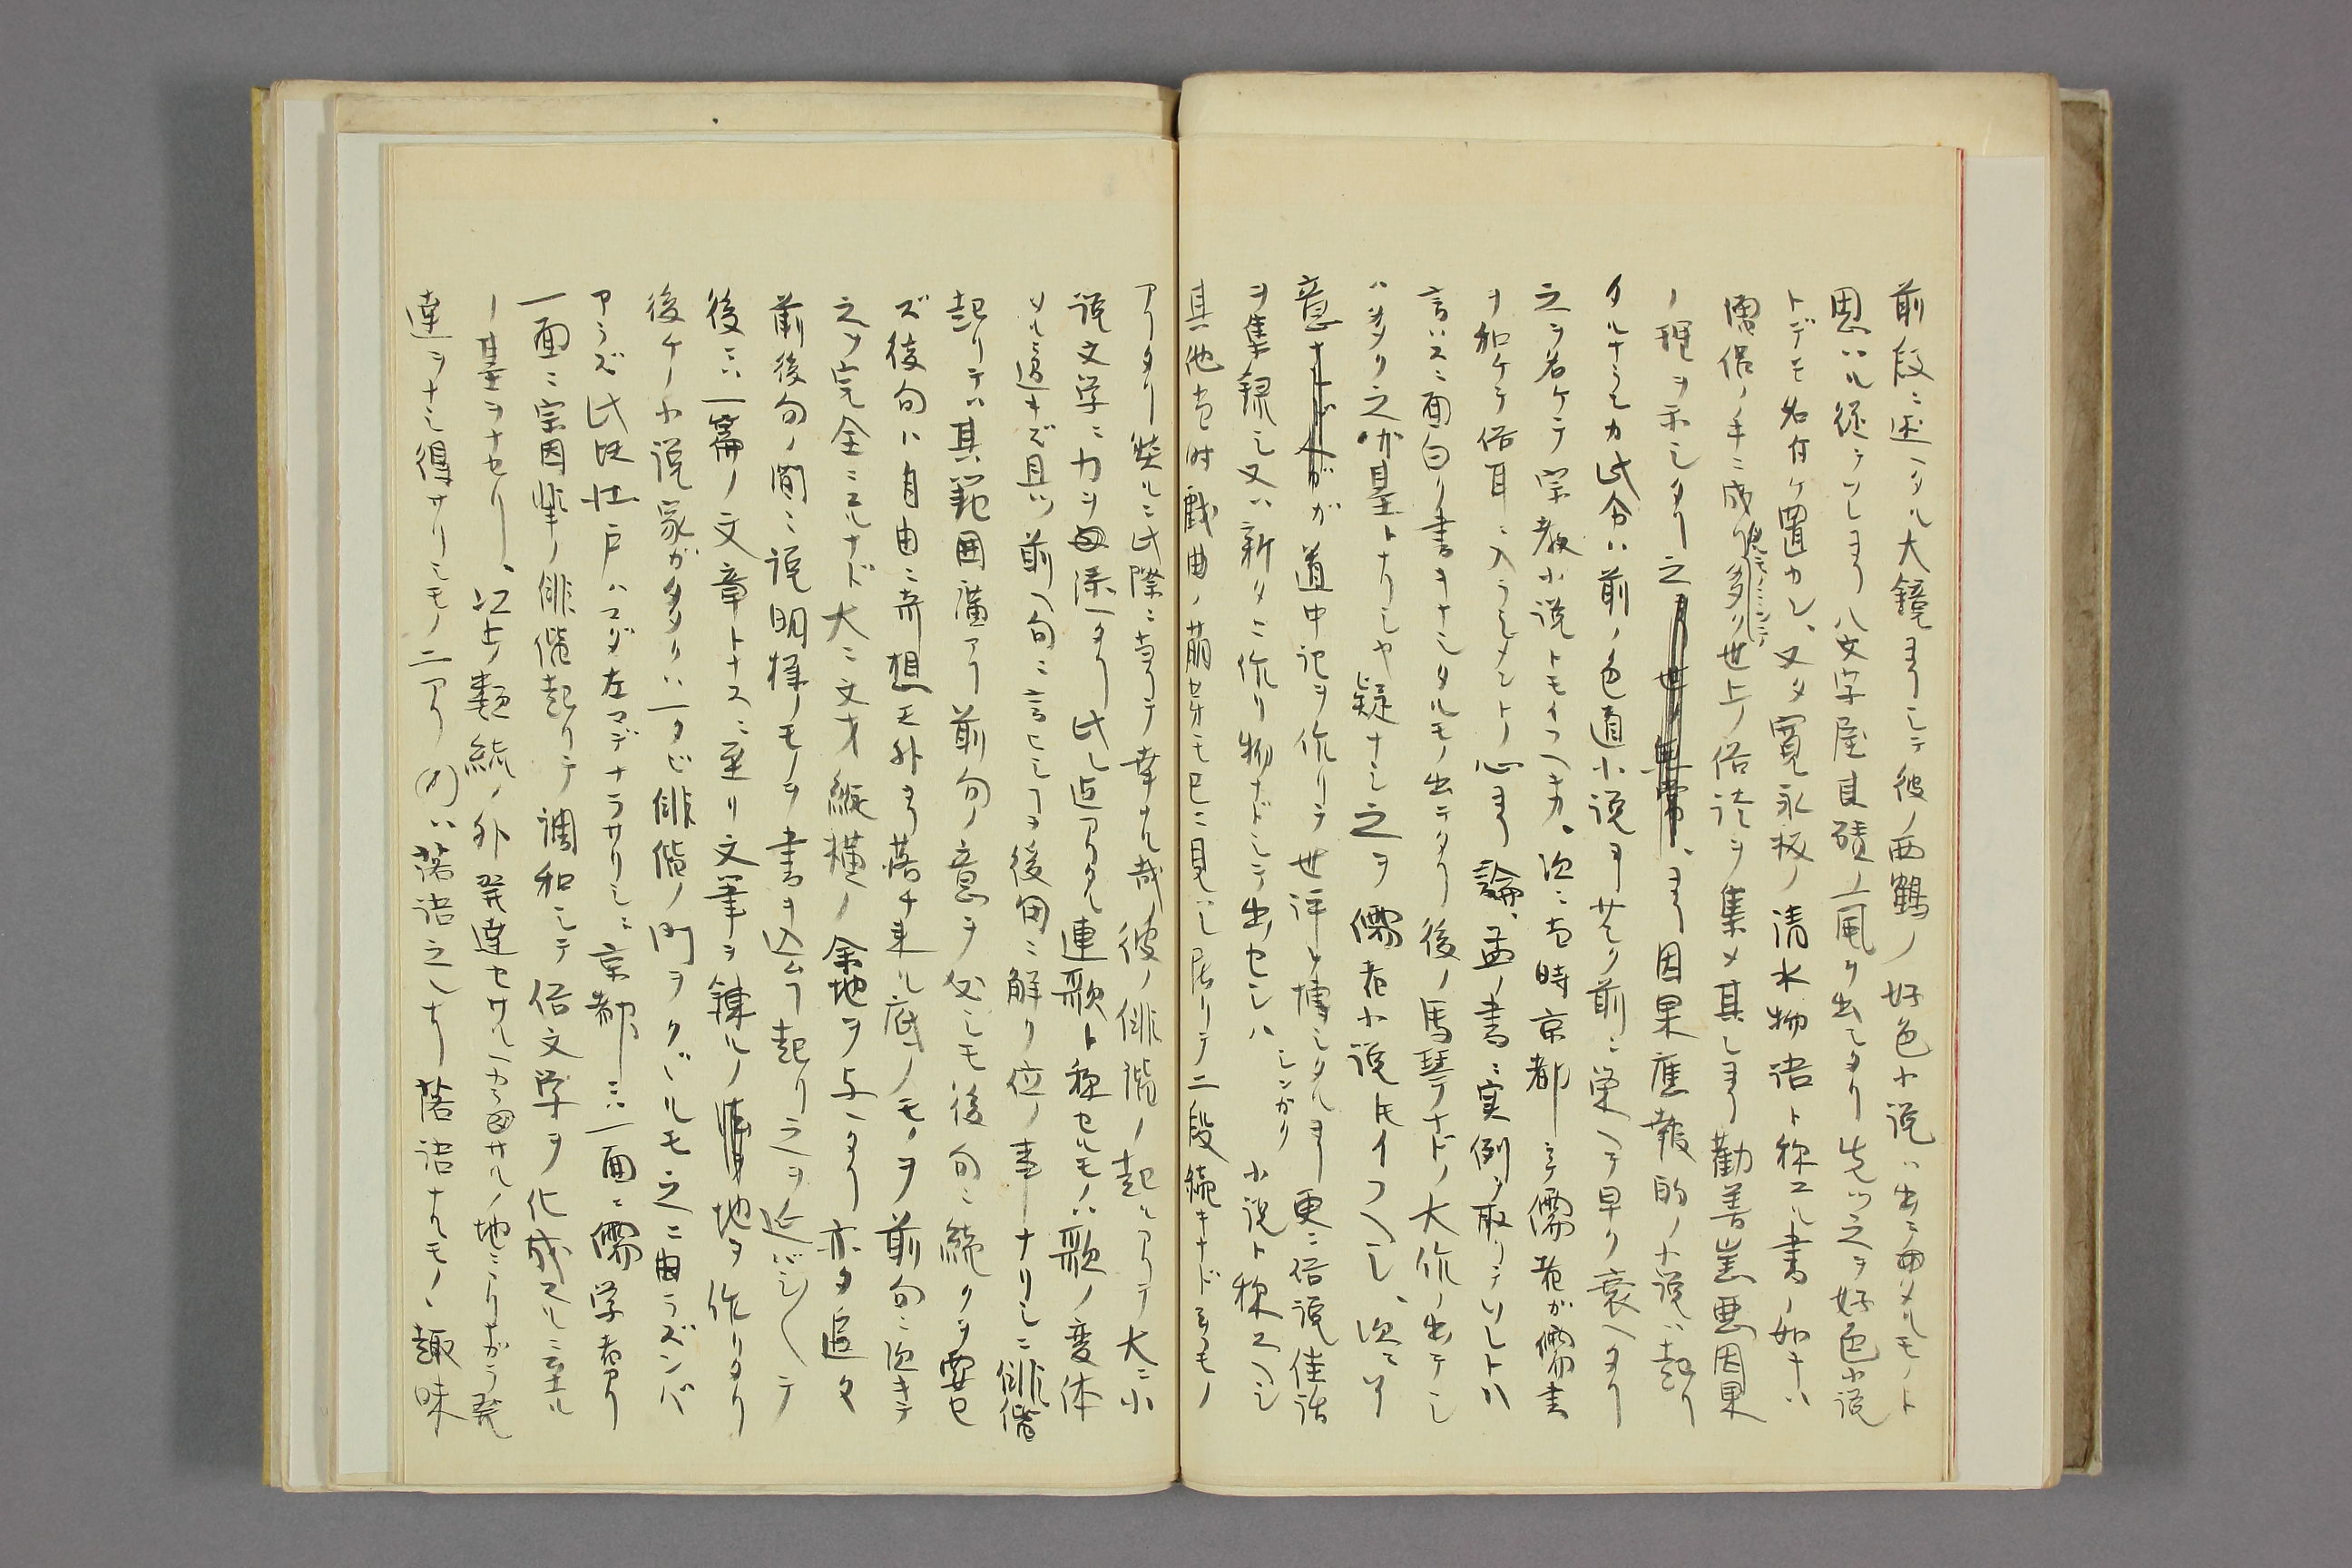 前段ニ述ヘタル大鏡ヨリシテ彼ノ西鶴ノ好色小説ハ出テ曲メルモノト
思ハル従テソレヨリ八文字屋自磧ノ一風ノ出テタリ先ツ之ヲ好色小説
トデモ名付ケ置カン、又タ寛永板ノ清水物語ト称スル書ノ如キハ
儒侶ノ手ニ成リ多ク世上ノ俗諺ヲ集メ其レヨリ勧善懲悪因果
ノ理ヲ示シタリ之ヨリ因果應報的ノ小説ハ起リ
タルナラムカ此分ハ前ノ色道小説ヨリ少ク前ニ栄ヘテ早ク衰ヘタリ
之ヲ名ケテ宗教小説トモイフヘキカ。次ニ当時京都ニテ儒者ガ儒書
ヲ和ケテ俗耳ニ入ラシメントノ心ヨリ論、孟ノ書ニ実例ヲ取リテソレトハ
言ハスニ面白ク書キナシタルモノ出テタリ後ノ馬琴ナドノ大作ノ出テシ
ハ多クハ之カ基トナリシヤ疑ナシ之ヲ儒者小説トモイフヘシ、次ニ
意ガ道中記ヲ作リテ世評ヲ博シタルヨリ更ニ俗説佳話
ヲ集録シ又ハ新タニ作リ物ナドシテ出セシハシンガリ小説ト称スヘシ
其他当時戯曲ノ萠芽モ已ニ見ハレ居リテ二段続キナドヨリモノ
アリタリ然ルニ此際ニ当リテ幸ナル哉彼ノ俳諧ノ起ルアリテ大ニ小
説文学ニ力ヲ添ヘタリ此レ迄アリタル連歌ト称セルモノハ歌ノ変体
ソルニ過キズ且ツ前ノ句ニ言ヒシコヲ後句ニ解ク位ノ事ナリシニ俳諧
起リテハ其範囲廣マリ前句ノ意ヲ必シモ後句ニ続クヲ要セ
ズ後句ハ自由ニ奇想モ外ヨリ落チ来ル底ノモノヲ前句ニ次キテ
之ヲ完全ニスルナド大ニ文才縦横ノ余地ヲ与ヘタリ亦タ追々
前後句ノ間ニ説明様ノモノヲ書キ込ムコ起リ之ヲ延バシ〱テ
後ニハ一篇ノ文章トナスニ至リ文筆ヲ錬ルノ地ヲ作リタリ
後ケノ小説家ガ多クハ一タビ俳諧ノ門ヲクヾルモ之ニ由ラズンバ
アラズ此段江戸ハマダ左マデナラサリシニ京都ニハ一面ニ儒学者アリ
一面ニ宗因輩ノ俳諧起リテ調和シテ俗文学ヲ化成スルニ至ル
ノ基ヲナセリ、以上ノ類続ノ外発達セサルヘカラサルノ地ニアリナガラ発
達ヲナシ得サリシモノ二アリ(1)ハ落語之レナリ落語ナルモノヽ趣味